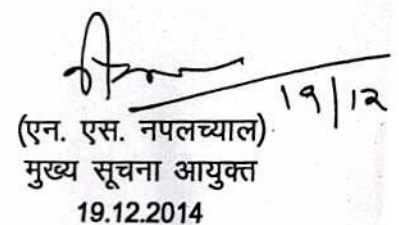 19/12
(एन. एस. नपलच्याल)
मुख्य सूचना आयुक्त
19.12.2014